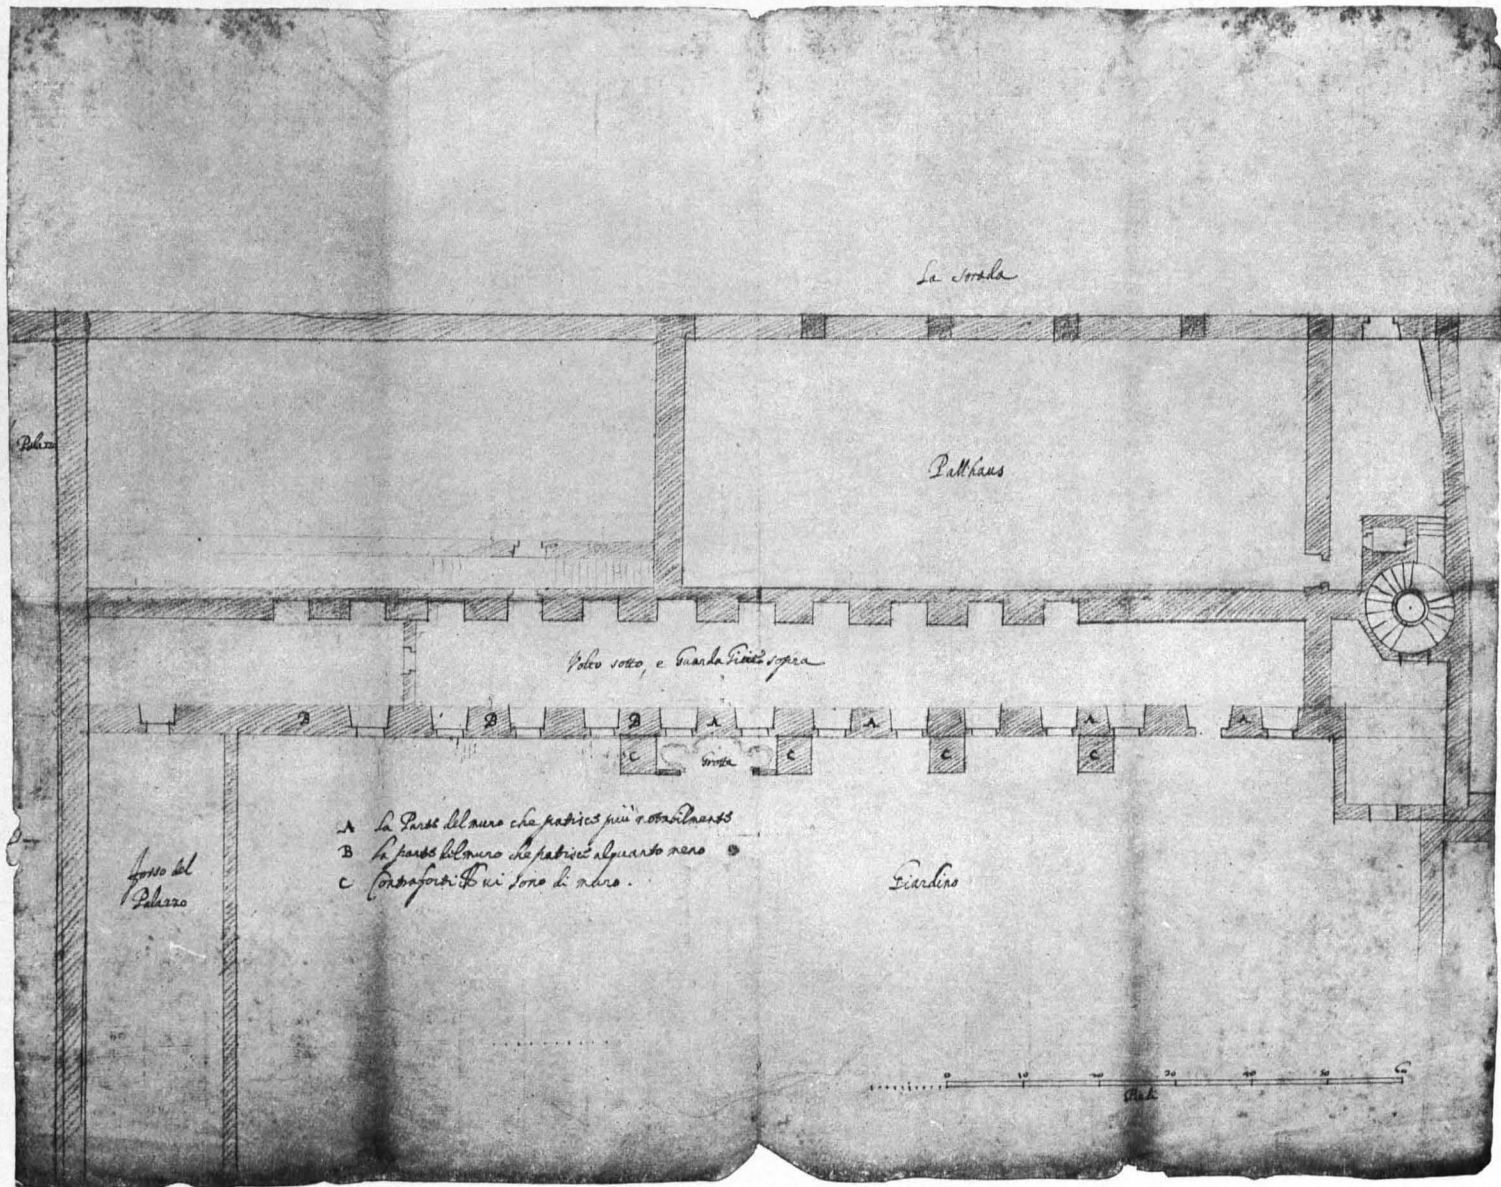 La strada
Palazzo
Pallhaus
Volto sotto, e Guarda sopra
B B B A A A A
C C C C
Grotta
A La Parte del muro che patisce più notabilmente
B La parte del muro che patisce alquanto meno
C Contraforti che vi sono di muro.
fosso del
Palazzo
Giardino
0 10 20 30 40 50 60
Piedi